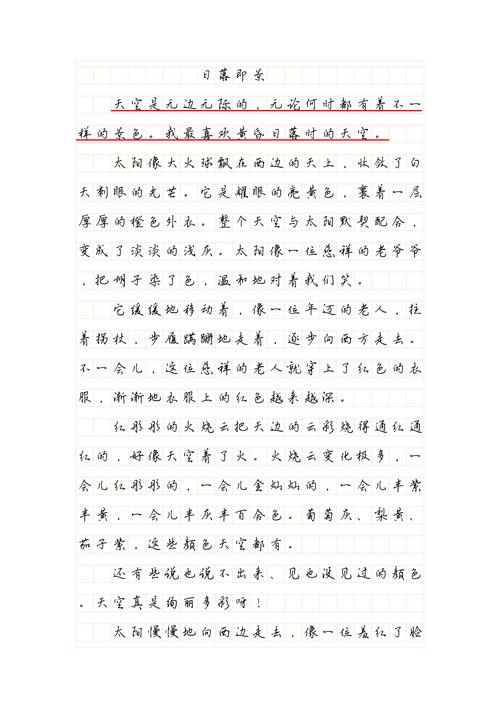 日落即景
天空是无边无际的，无论何时都有着不一
样的景色。我最喜欢黄昏日落时的天空。
太阳像大火球飘在西边的天上，收敛了白
天刺眼的光芒。它是耀眼的亮黄色，裹着一层
厚厚的橙色外衣。整个天空与太阳默契配合，
变成了淡淡的浅灰。太阳像一位慈祥的老爷爷
，把胡子染了色，温和地对着我们笑。
它缓缓地移动着，像一位年迈的老人，拄
着拐杖，步履蹒跚地走着，逐步向西方走去。
不一会儿，这位慈祥的老人就穿上了红色的衣
服，渐渐地衣服上的红色越来越深。
红彤彤的火烧云把天边的云彩烧得通红通
红的，好像天空着了火。火烧云变化极多，一
会儿红彤彤的，一会儿金灿灿的，一会儿半紫
半黄，一会儿半灰半百合色。葡萄灰、梨黄、
茄子紫，这些颜色天空都有。
还有些说也说不出来、见也没见过的颜色
。天空真是绚丽多彩呀！
太阳慢慢地向西边走去，像一位羞红了脸